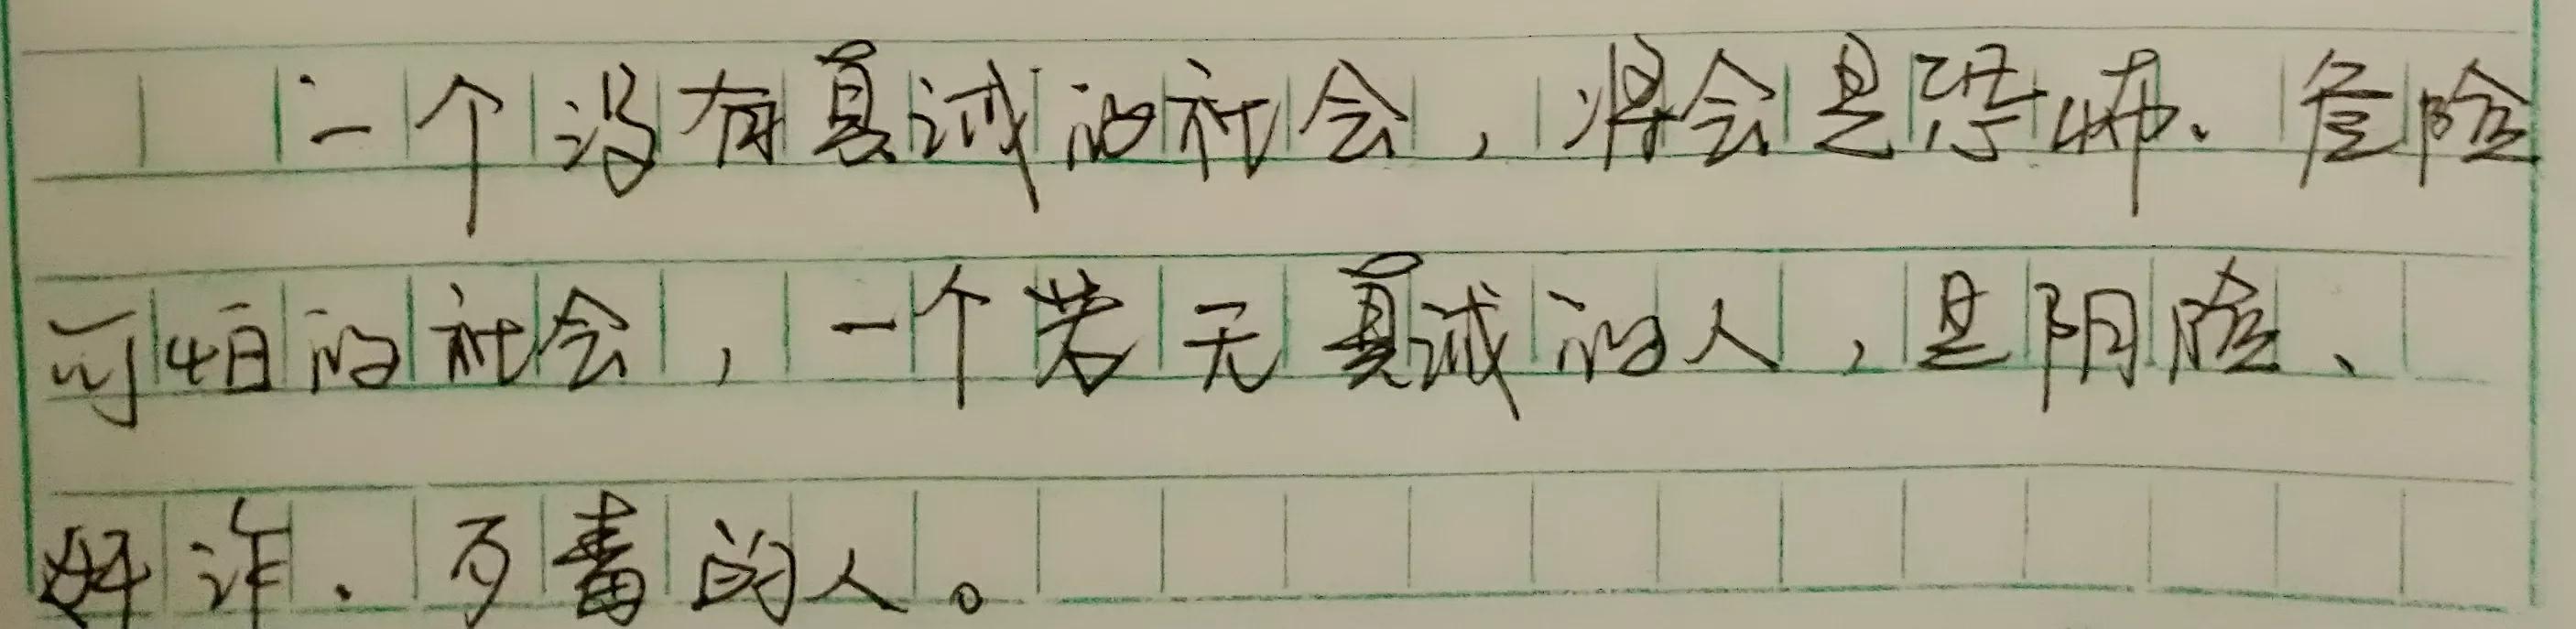 一个没有真诚的社会，将会是恐怖、危险
可怕的社会，一个若无真诚的人，是阴险、
奸诈、歹毒的人。